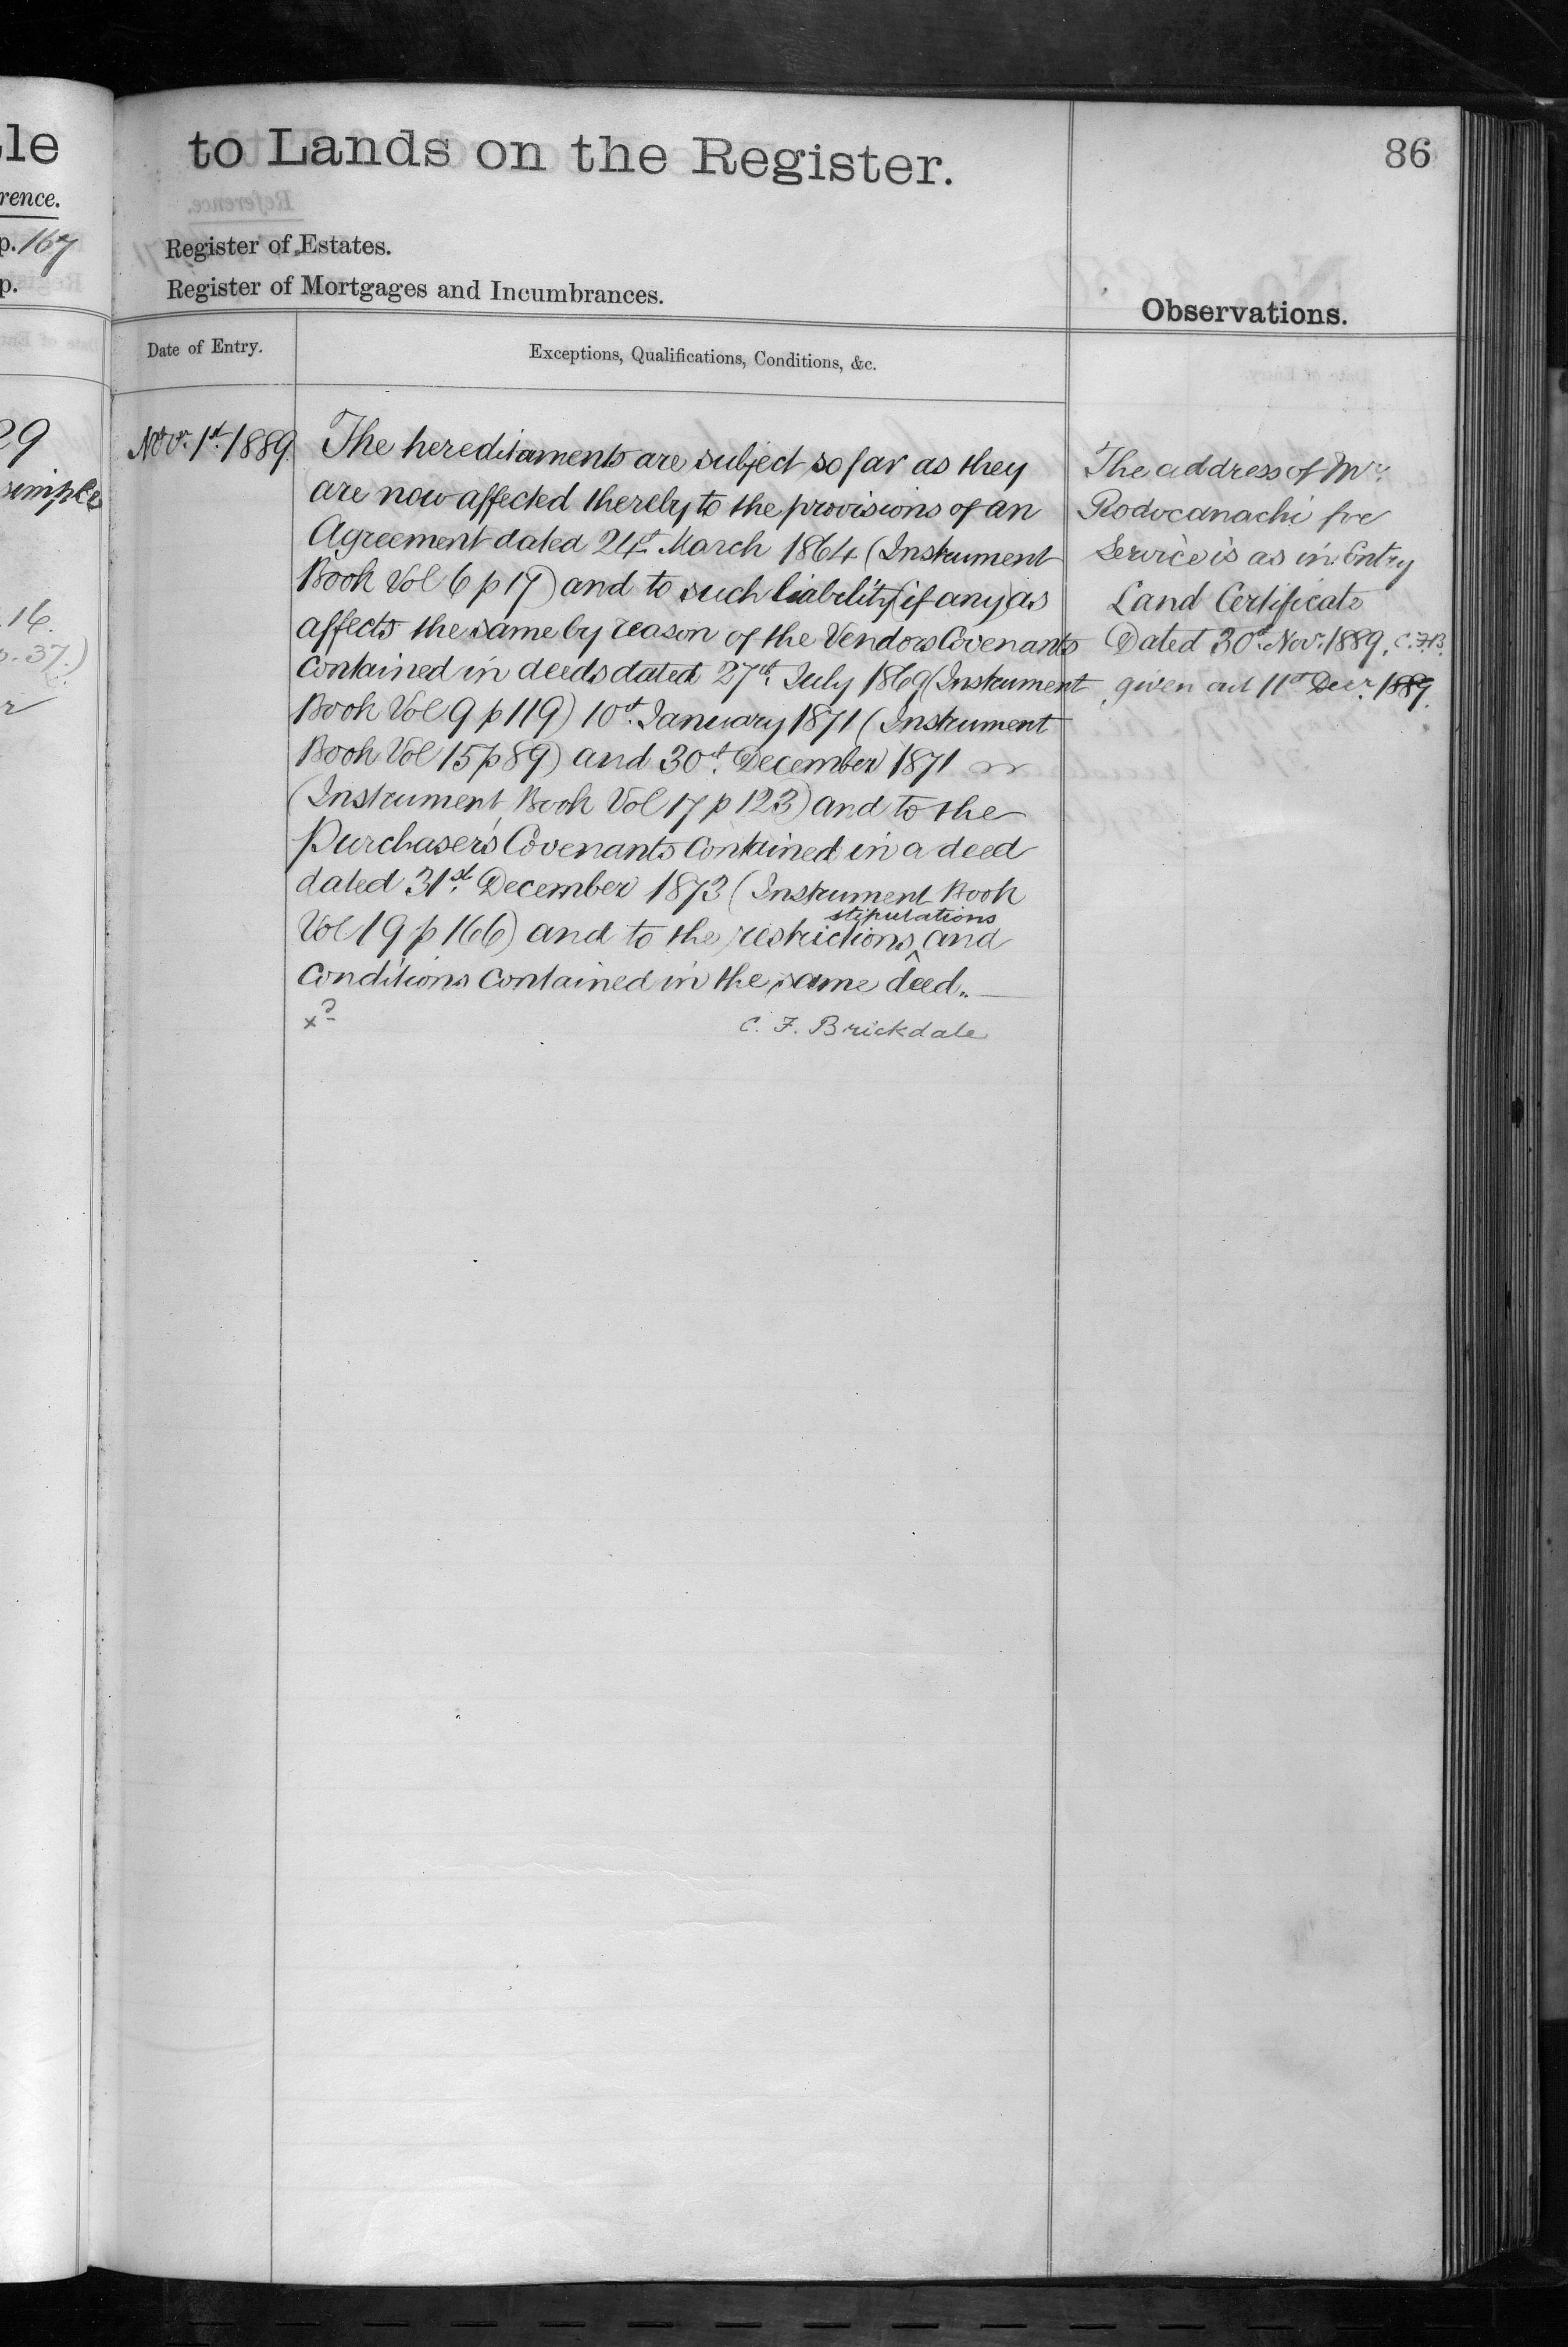 le
rence.
p. 167
p.
29
simple
16.
p. 37.)
to Lands on the Register.
86
Register of Estates.
Register of Mortgages and Incumbrances.
Observations.
Date of Entry.
Exceptions, Qualifications, Conditions, &c.
Novr. 1st. 1889.
The hereditaments are subject so far as they
are now affected thereby to the provisions of an
Agreement dated 24th March 1864 (Instrument
Book Vol 6 p 17) and to such liability (if any) as
affects the same by reason of the Vendors Covenants
contained in deeds dated 27th. July 1869 (Instrument
Book Vol 9 p 119) 10th. January 1871 (Instrument
Book Vol 15 p 89) and 30th. December 1871
(Instrument Book Vol 17 p 123) and to the
Purchaser's Covenants contained in a deed
dated 31st. December 1873 (Instrument Book
stipulations
Vol 19 p 166) and to the restrictions ^ and
conditions contained in the same deed.
x?
C. F. Brickdale
The address of Mr.
Rodocanachi for
Service is as in Entry
Land Certificate
Dated 30th. Nov. 1889. C.F.B.
given out 11th Decr. 1889.